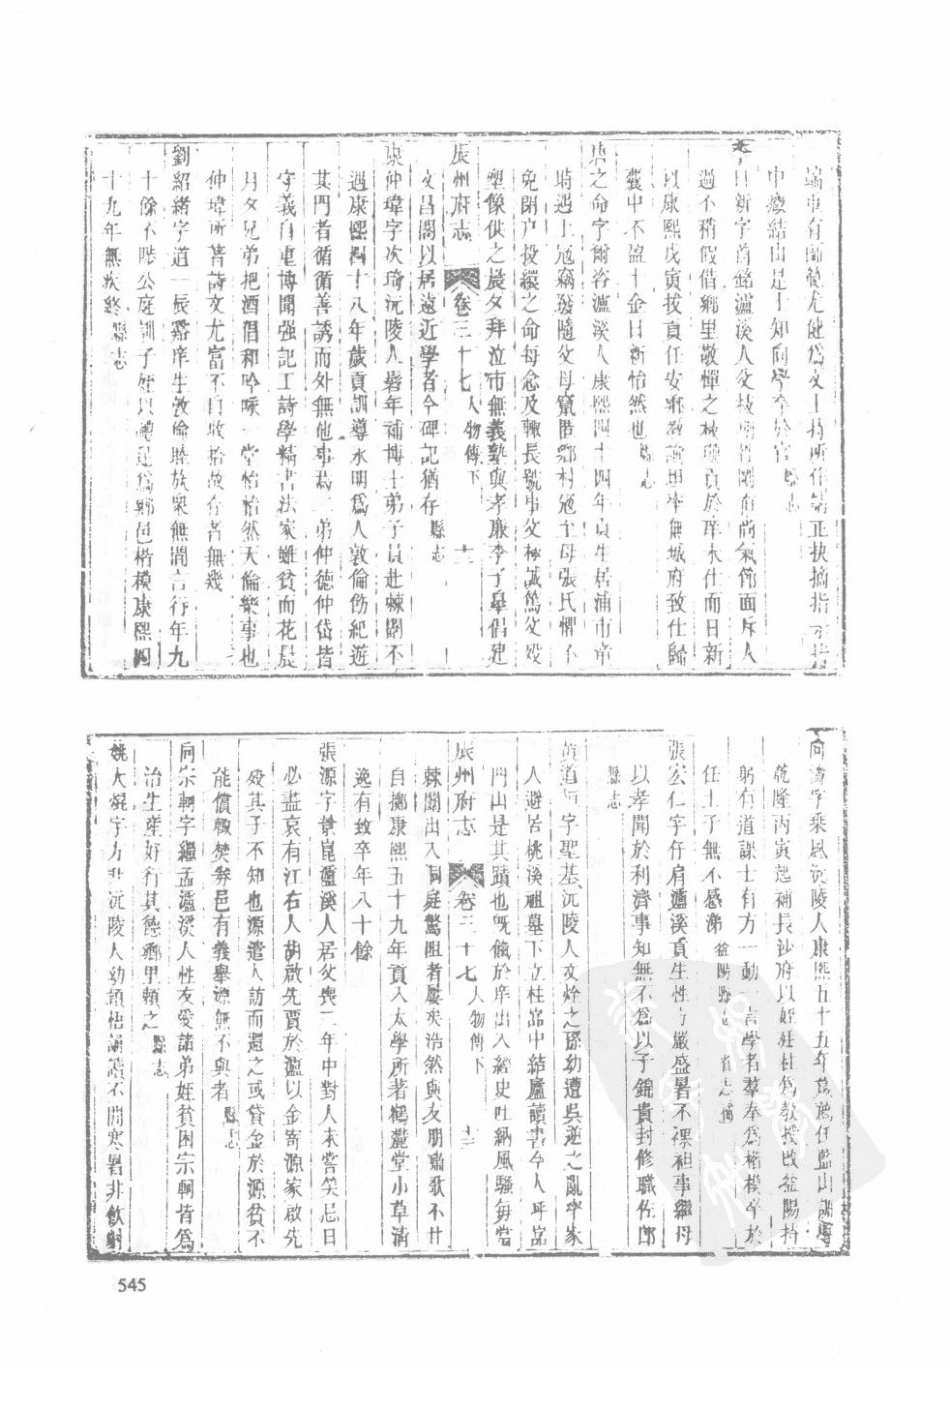 端車有師範尤健爲文士持所作請正抉摘指示皆
中瘢結由是士知向學卒於官縣志
日新字首銘瀘溪人父技
過不稍假借鄉里敬憚之
以康熙戊寅拔貢任安鄉教諭坦率無城府致仕歸
囊中不盈十金日新怡然也縣志
之命字爾容瀘溪人康熙四十四年貢生居浦市帝
時遇土寇竊發隨父母竄匿鄉村寇至母張氏懼不
免閉戶投繯之命母念及輒長號事父極誠篤父歿
塑像供之晨夕拜泣市無義塾與孝廉李子皋倡建
辰州府志 卷三十七 人物傳下 十二
文昌閣以居遠近學者今碑記猶存縣志
康仲瑋字次琦沅陵人髫年補博士弟子員赴棘闈不
遇康熙四十八年歲貢訓導永明爲人敦倫飭紀遊
其門者循循善誘而外無他事焉二弟仲德仲岱皆
守義自重博聞强記工詩學精書法家雖貧而花晨
月夕兄弟把酒倡和吟咏一堂怡怡然天倫樂事也
仲瑋所著詩文尤富不自收拾故存者無幾
劉紹緒字道一辰谿庠生敦倫睦族衆無間言行年九
十餘不履公庭訓子姪以禮起爲鄉邑楷模康熙四
十九年無疾終縣志
向 字乘恩沅陵人康熙五十五年 薦任藍山訓導
乾隆丙寅起補長沙府以姪 社爲教授改益陽持
躬有道課士有方一動一言學者羣奉爲楷模卒於
任士子無不感涕益陽縣志 省志 通
張宏仁字仔肩瀘溪貢生性方嚴盛暑不裸袒事繼母
以孝聞於利濟事知無不爲以子錦貴封修職佐郎
縣志
黃道 字聖基沅陵人文烇之孫幼遭吳逆之亂率家
人避居桃溪祖墓下立桂嵓中結廬讀書今人呼嵓
門山是其蹟也旣餼於庠出入經史吐納風騷每當
辰州府志 卷三十七 人物傳下 十三
棘闈出入洞庭驚阻者屢矣浩然與友朋嘯歌不甘
自擲康熙五十九年貢入太學所著鶴麓堂小草清
逸有致卒年八十餘
張源字景崑瀘溪人居父喪三年中對人未嘗笑忌日
必盡哀有江右人胡啟先賈於瀘以金寄源家啟先
歿其子不知也源遣人訪而還之或貸金於源貧不
能償輒焚券邑有義舉源無不與者縣志
向宗輈字繼孟瀘溪人性友愛諸弟姪貧困宗輈皆爲
治生產好行其德鄉里賴之縣志
姚大 字方升沅陵人幼穎悟誦讀不間寒暑非飲射
545